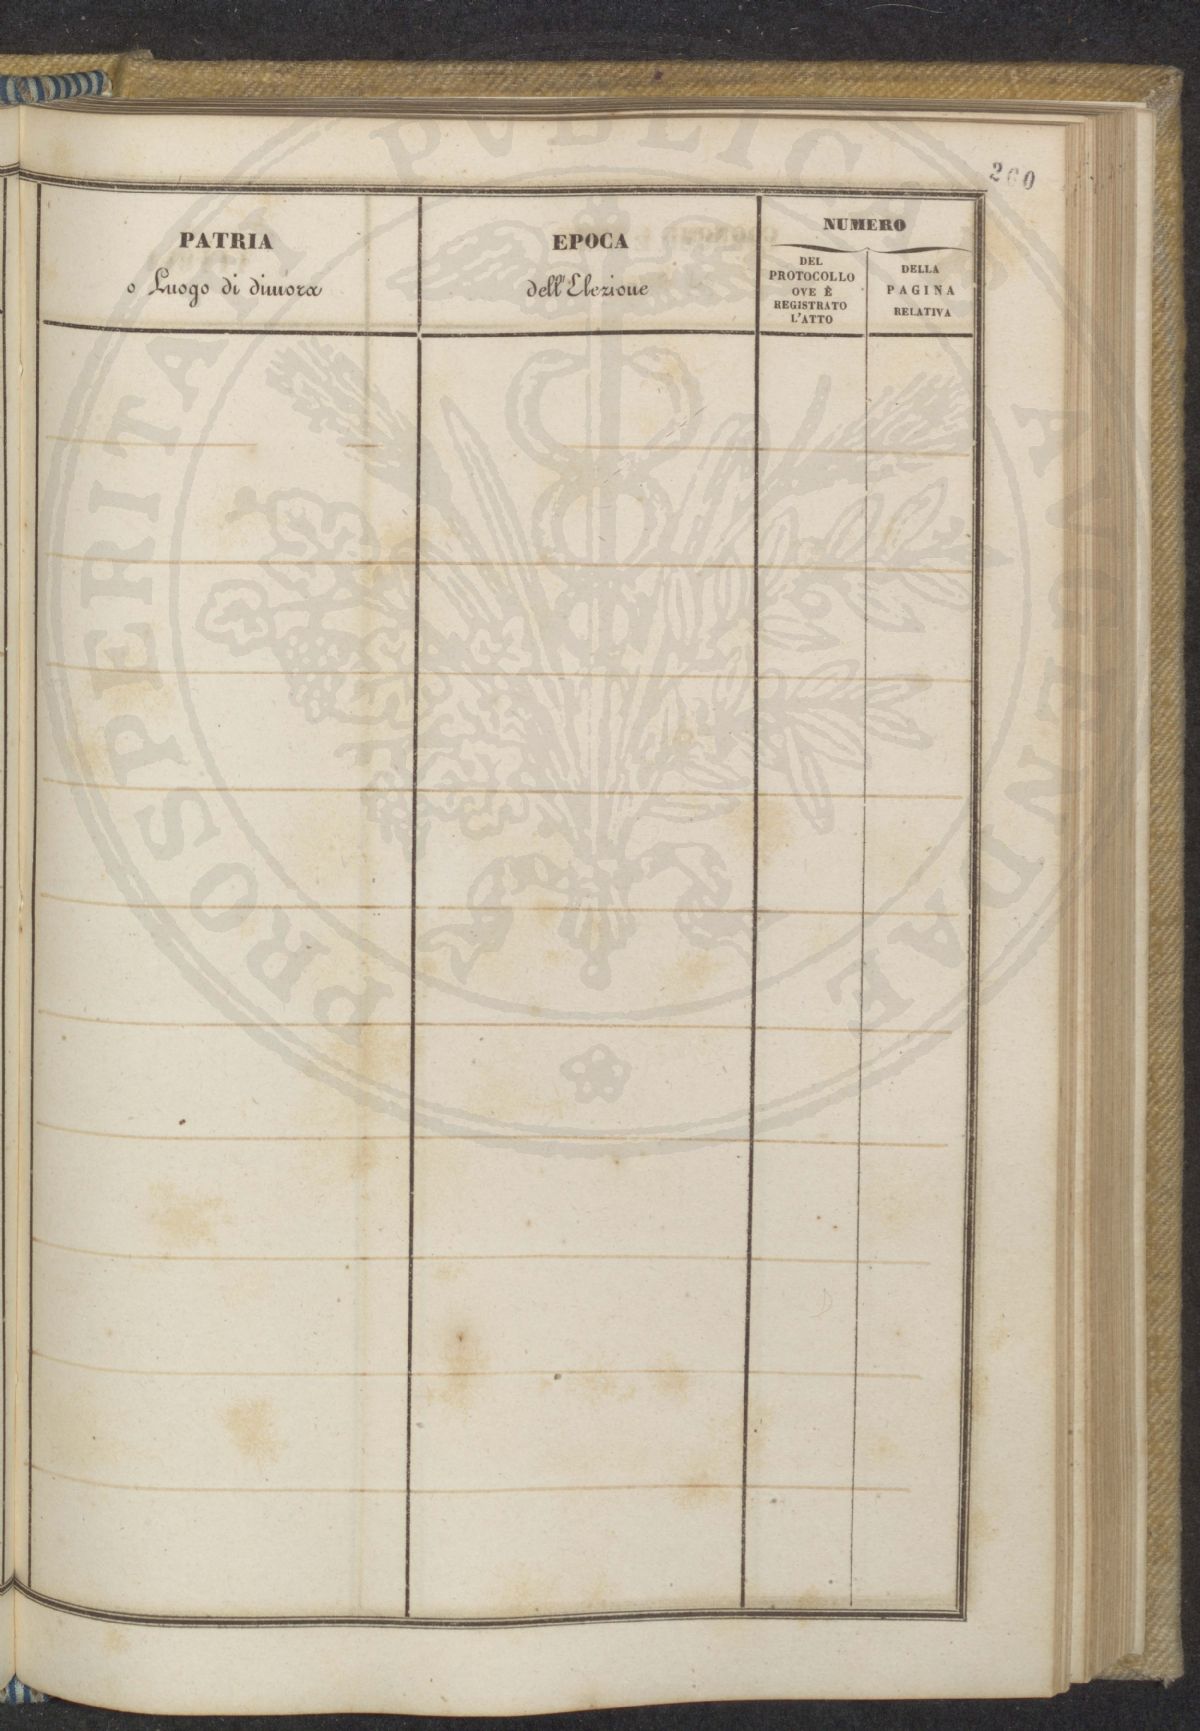 260
PATRIA
o Luogo di dimora
EPOCA
dell'Elezione
NUMERO
DEL
PROTOCOLLO
OVE È
REGISTRATO
L'ATTO
DELLA
PAGINA
RELATIVA
PROSPERITATI PVBLICAE AVGENDAE